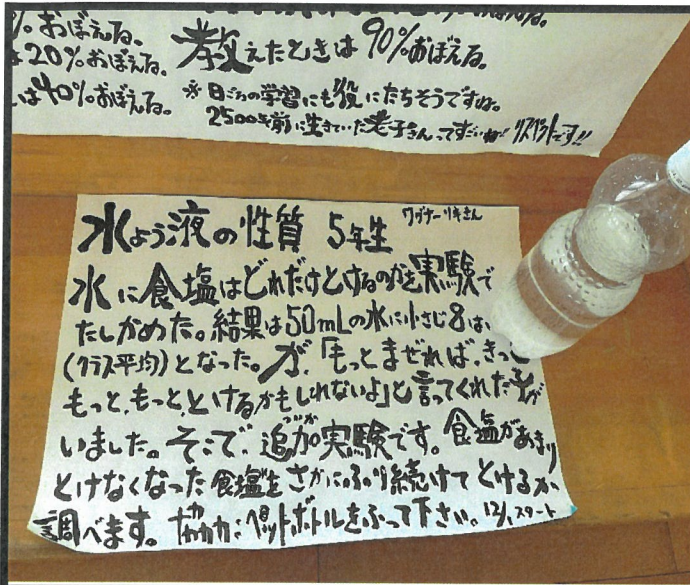 おぼえる。
20%おぼえる。
は40%おぼえる。
教えたときは90%おぼえる。
※日ごろの学習にも役にたちそうですね。
2500年前に生きていた老子さんってすごいね!! リスペクトです!!
水よう液の性質 5年生
ワグナーリキさん
水に食塩はどれだけとけるのかを実験で
たしかめた。結果は50mLの水に小さじ8は、
(クラス平均)となった。が、「もっとまぜれば、きっと
もっと、もっと、とけるかもしれないよ」と言ってくれた子が
いました。そこで、追加実験です。食塩があまり
ついか
とけなくなった食塩を さかにふり続けて とけるか
調べます。ペットボトルをふって下さい。12/1、スタート